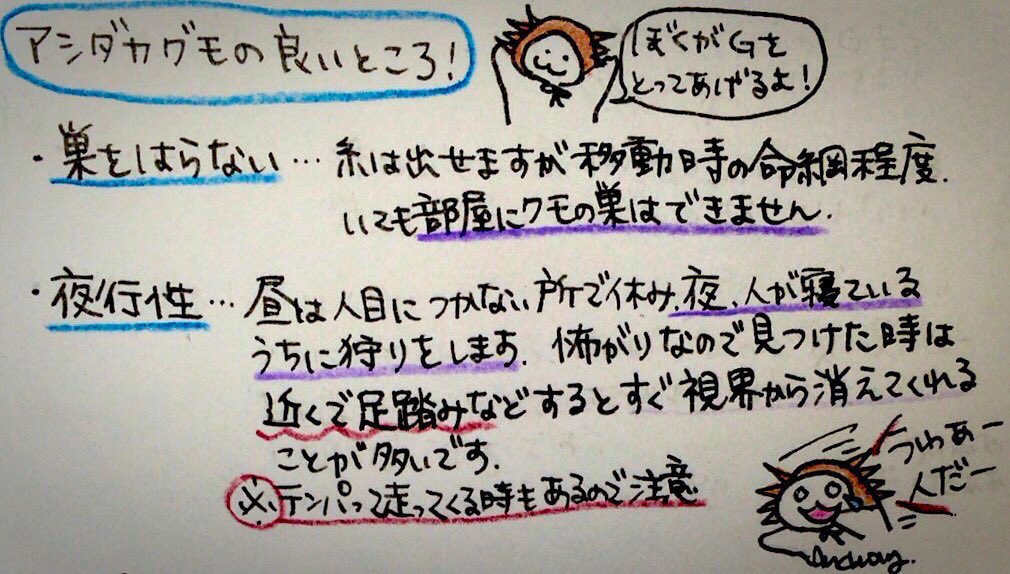 アシダカグモの良いところ!
ぼくがGを
とってあげるよ!
・巣をはらない… 糸は出せますが移動時の命綱程度.
いても部屋にクモの巣はできません.
・夜行性… 昼は人目につかない所で休み、夜、人が寝ている
うちに狩りをします. 怖がりなので見つけた時は
近くで足踏みなどするとすぐ視界から消えてくれる
ことが多いです.
※テンパって走ってくる時もあるので注意
うわぁー
人だー